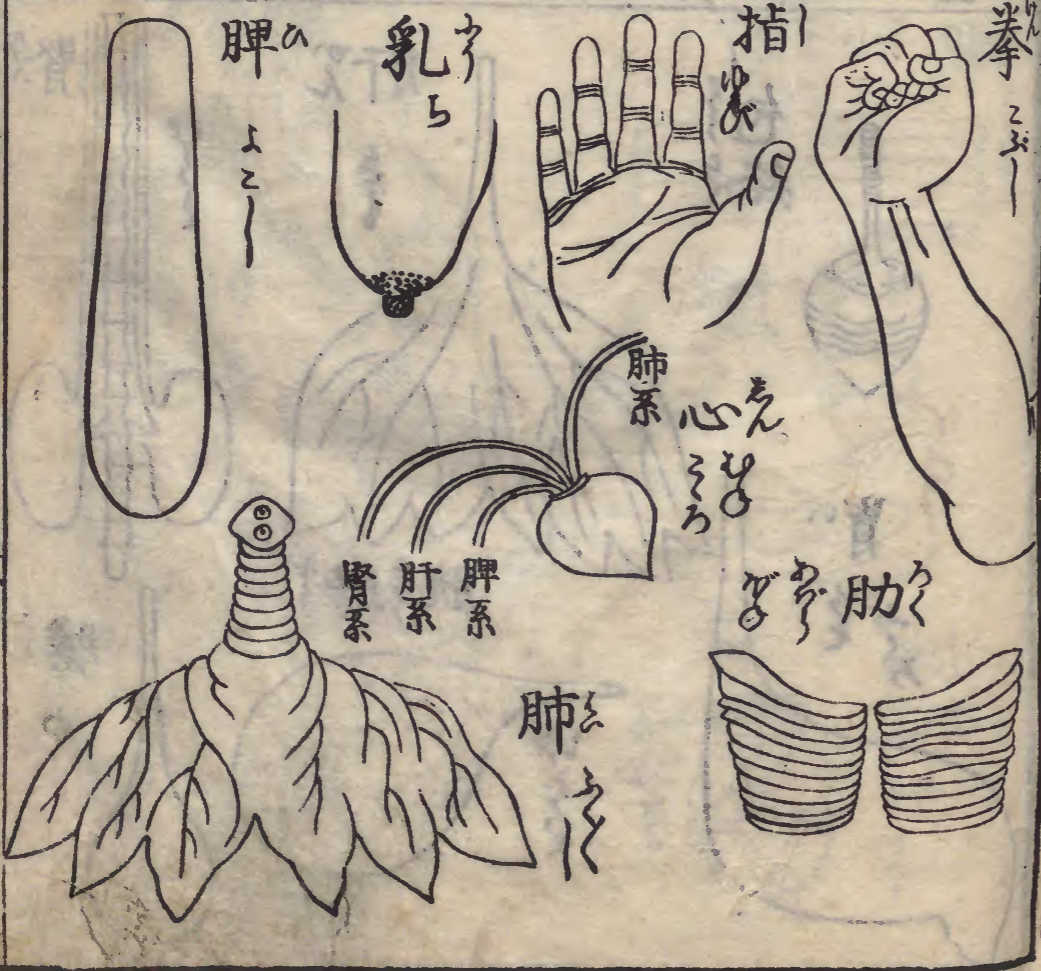 拳 けん
こぶし
指 し
ゆび
乳 にう
ち
脾 ひ
よこし
心 しん
むね
こゝろ
肺系
脾系
肝系
腎系
肋 ろく
あばら
ぼね
肺 はい
ふく〳〵し